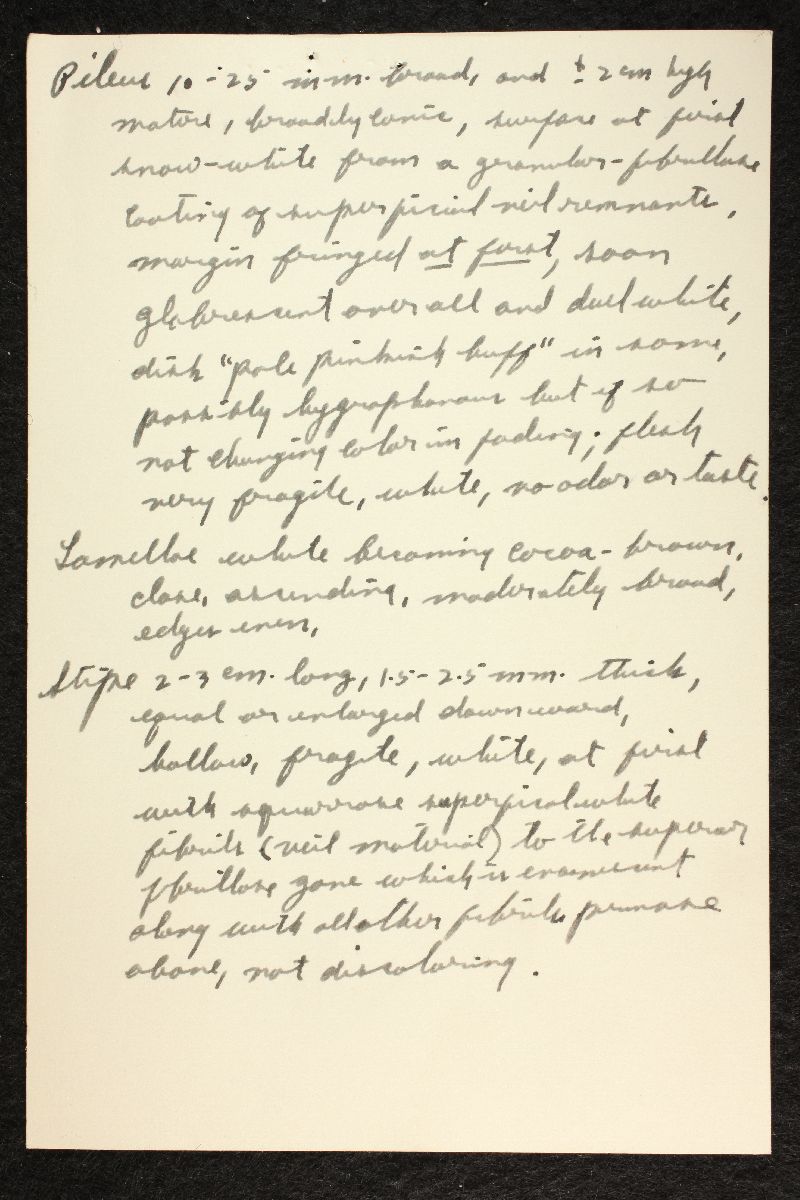 Pileus 10-25 mm. broad, and ± 2 cm high
mature, broadly conic, surface at first
snow-white from a granulose-fibrillose
coating of superficial veil remnants,
margin fringed at first, soon
glabrescent over all and dull white,
disk "pale pinkish buff" in some,
possibly hygrophanous but if so
not changing color in fading; flesh
very fragile, white, no odor or taste.
Lamellae white becoming cocoa-brown,
close, ascending, moderately broad,
edges even,
Stipe 2-3 cm. long, 1.5-2.5 mm. thick,
equal or enlarged downward,
hollow, fragile, white, at first
with squarrose superficial white
fibrils (veil material) to the superior
fibrillose zone which is evanescent
along with all other fibrils, pruinose
above, not discoloring.